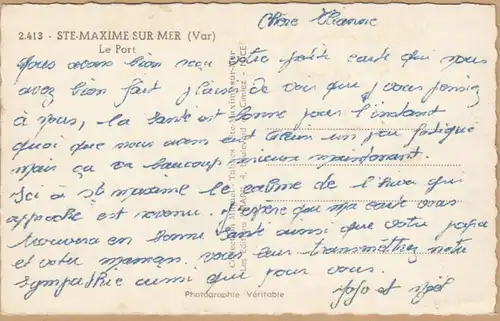 2.413 - STE-MAXIME SUR MER (Var)
Le Port
Chère
Nous avons bien reçu votre petite carte qui nous
avez bien fait plaisir de voir que vous pensiez
à nous, la santé est bonne pour l'instant
quoi que nous avons eut un peu fatigué
mais ça va beaucoup mieux maintenant.
Ici à St maxime le calme de l'hiver qui
approche est revenu. J'espère que ma carte vous
trouvera en bonne santé aussi que votre papa
et votre maman. vous leur transmettrez notre
sympathie aussi que pour vous.
Jojo et
Photographie Véritable